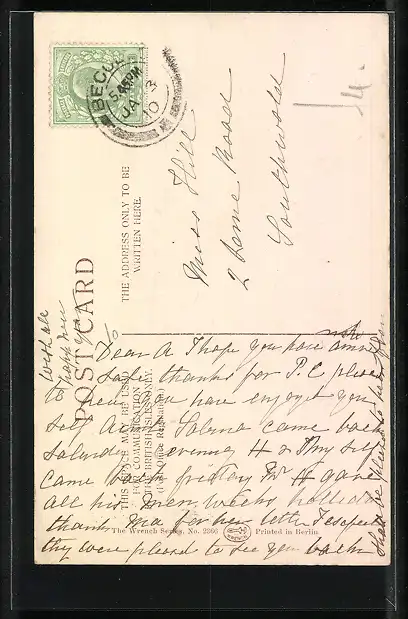 BECCL
5.45PM
JA 3
10
POST CARD
THE ADDRESS ONLY TO BE
WRITTEN HERE.
THIS SPACE MAY BE USED
FOR COMMUNICATION
THE BRITISH ISLES ONLY.
(Post Office Regulation)
Miss Hill
2 Lorne Road
Southwold
Dear A I hope you have
safe thanks for P.C.
hear you have enjoyed your
self Aunt Salina came back
Saturday evening H & My self
came back Friday Mr H gave
all his men weeks holliday
thank Ma for her letter I expect
they were pleased to see you back
shall be pleased to hear from
With all
happy new
The Wrench Series, No. 2366
Printed in Berlin